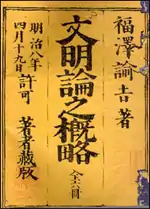 福澤諭吉著
文明論之概略
全六冊
明治八年
四月十九日許可
著者蔵版